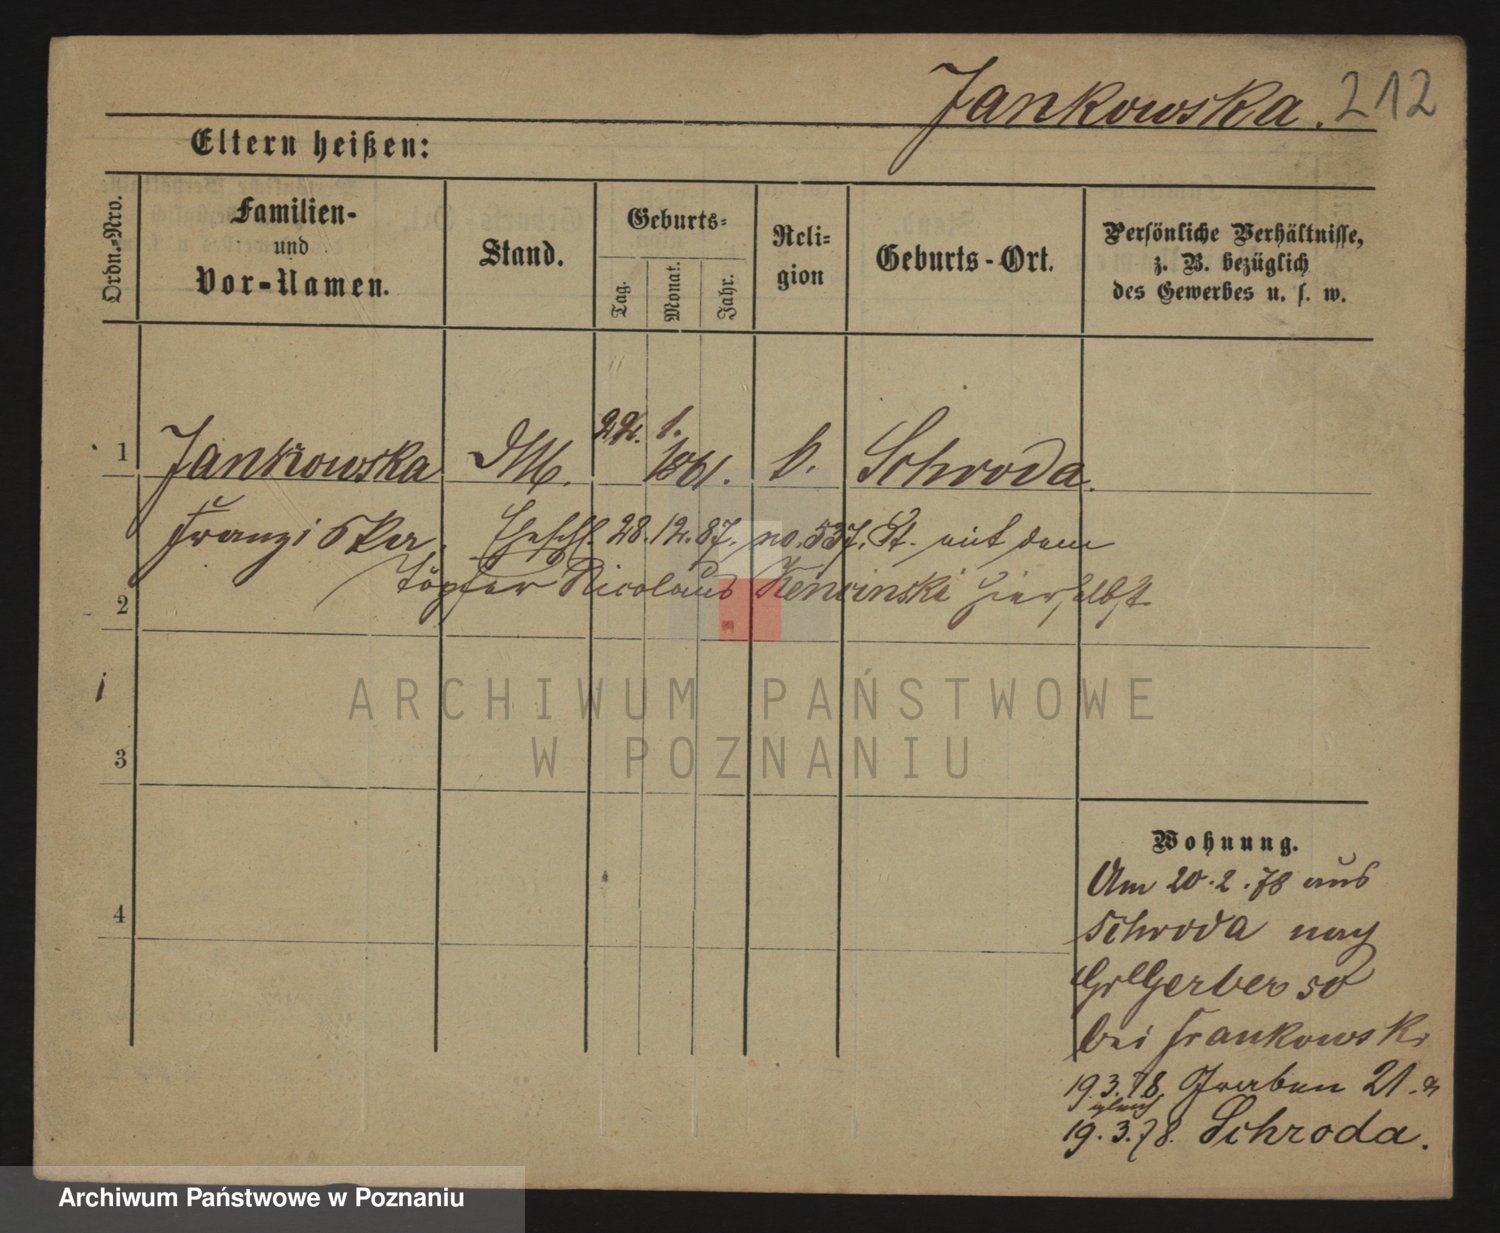 Jankowska. 212
Eltern heißen:
Ordn.-Nro.
Familien-
und
Vor-Namen.
Stand.
Geburts-
Tag.
Monat.
Jahr.
Reli-
gion
Geburts-Ort.
Persönliche Verhältnisse,
z. B. bezüglich
des Gewerbes u. s. w.
1 Jankowska DM. 22. 1. 1861. k. Schroda.
Franziska. Eheschl. 28.12.87. no. 537. St. mit dem
2 Töpfer Nicolaus hierselbst
3
4
Wohnung.
Am 20.2.78 aus
Schroda nach
Gr Gerber 50
bei Frankowski
19.3.78. Graben 21.
19.3.78. Schroda.
ARCHIWUM PAŃSTWOWE
W POZNANIU
Archiwum Państwowe w Poznaniu